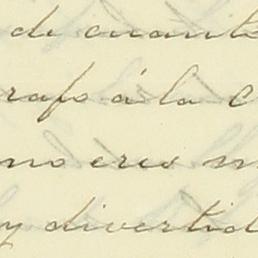 de cuant
rafo á la C
no eres m
y divertid